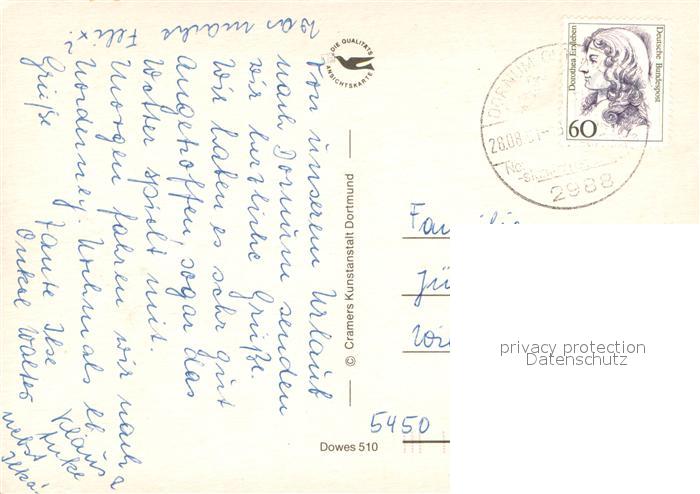 Von unserem Urlaub
nach Dornum senden
wir herzliche Grüße.
Wir haben es sehr gut
angetroffen, sogar das
Wetter spielt mit.
Morgen fahren wir nach
Norderney. Nochmals
Grüße Tante Ilse
Onkel Walter
Klaus
Anke
nebst
Was macht
Felix?
DIE QUALITÄTS
ANSICHTSKARTE
© Cramers Kunstanstalt Dortmund
Dowes 510
Dorothea Erxleben
Deutsche Bundespost
60
DORNUM
26.08.
2988
Fa
Jü
5450
privacy protection
Datenschutz